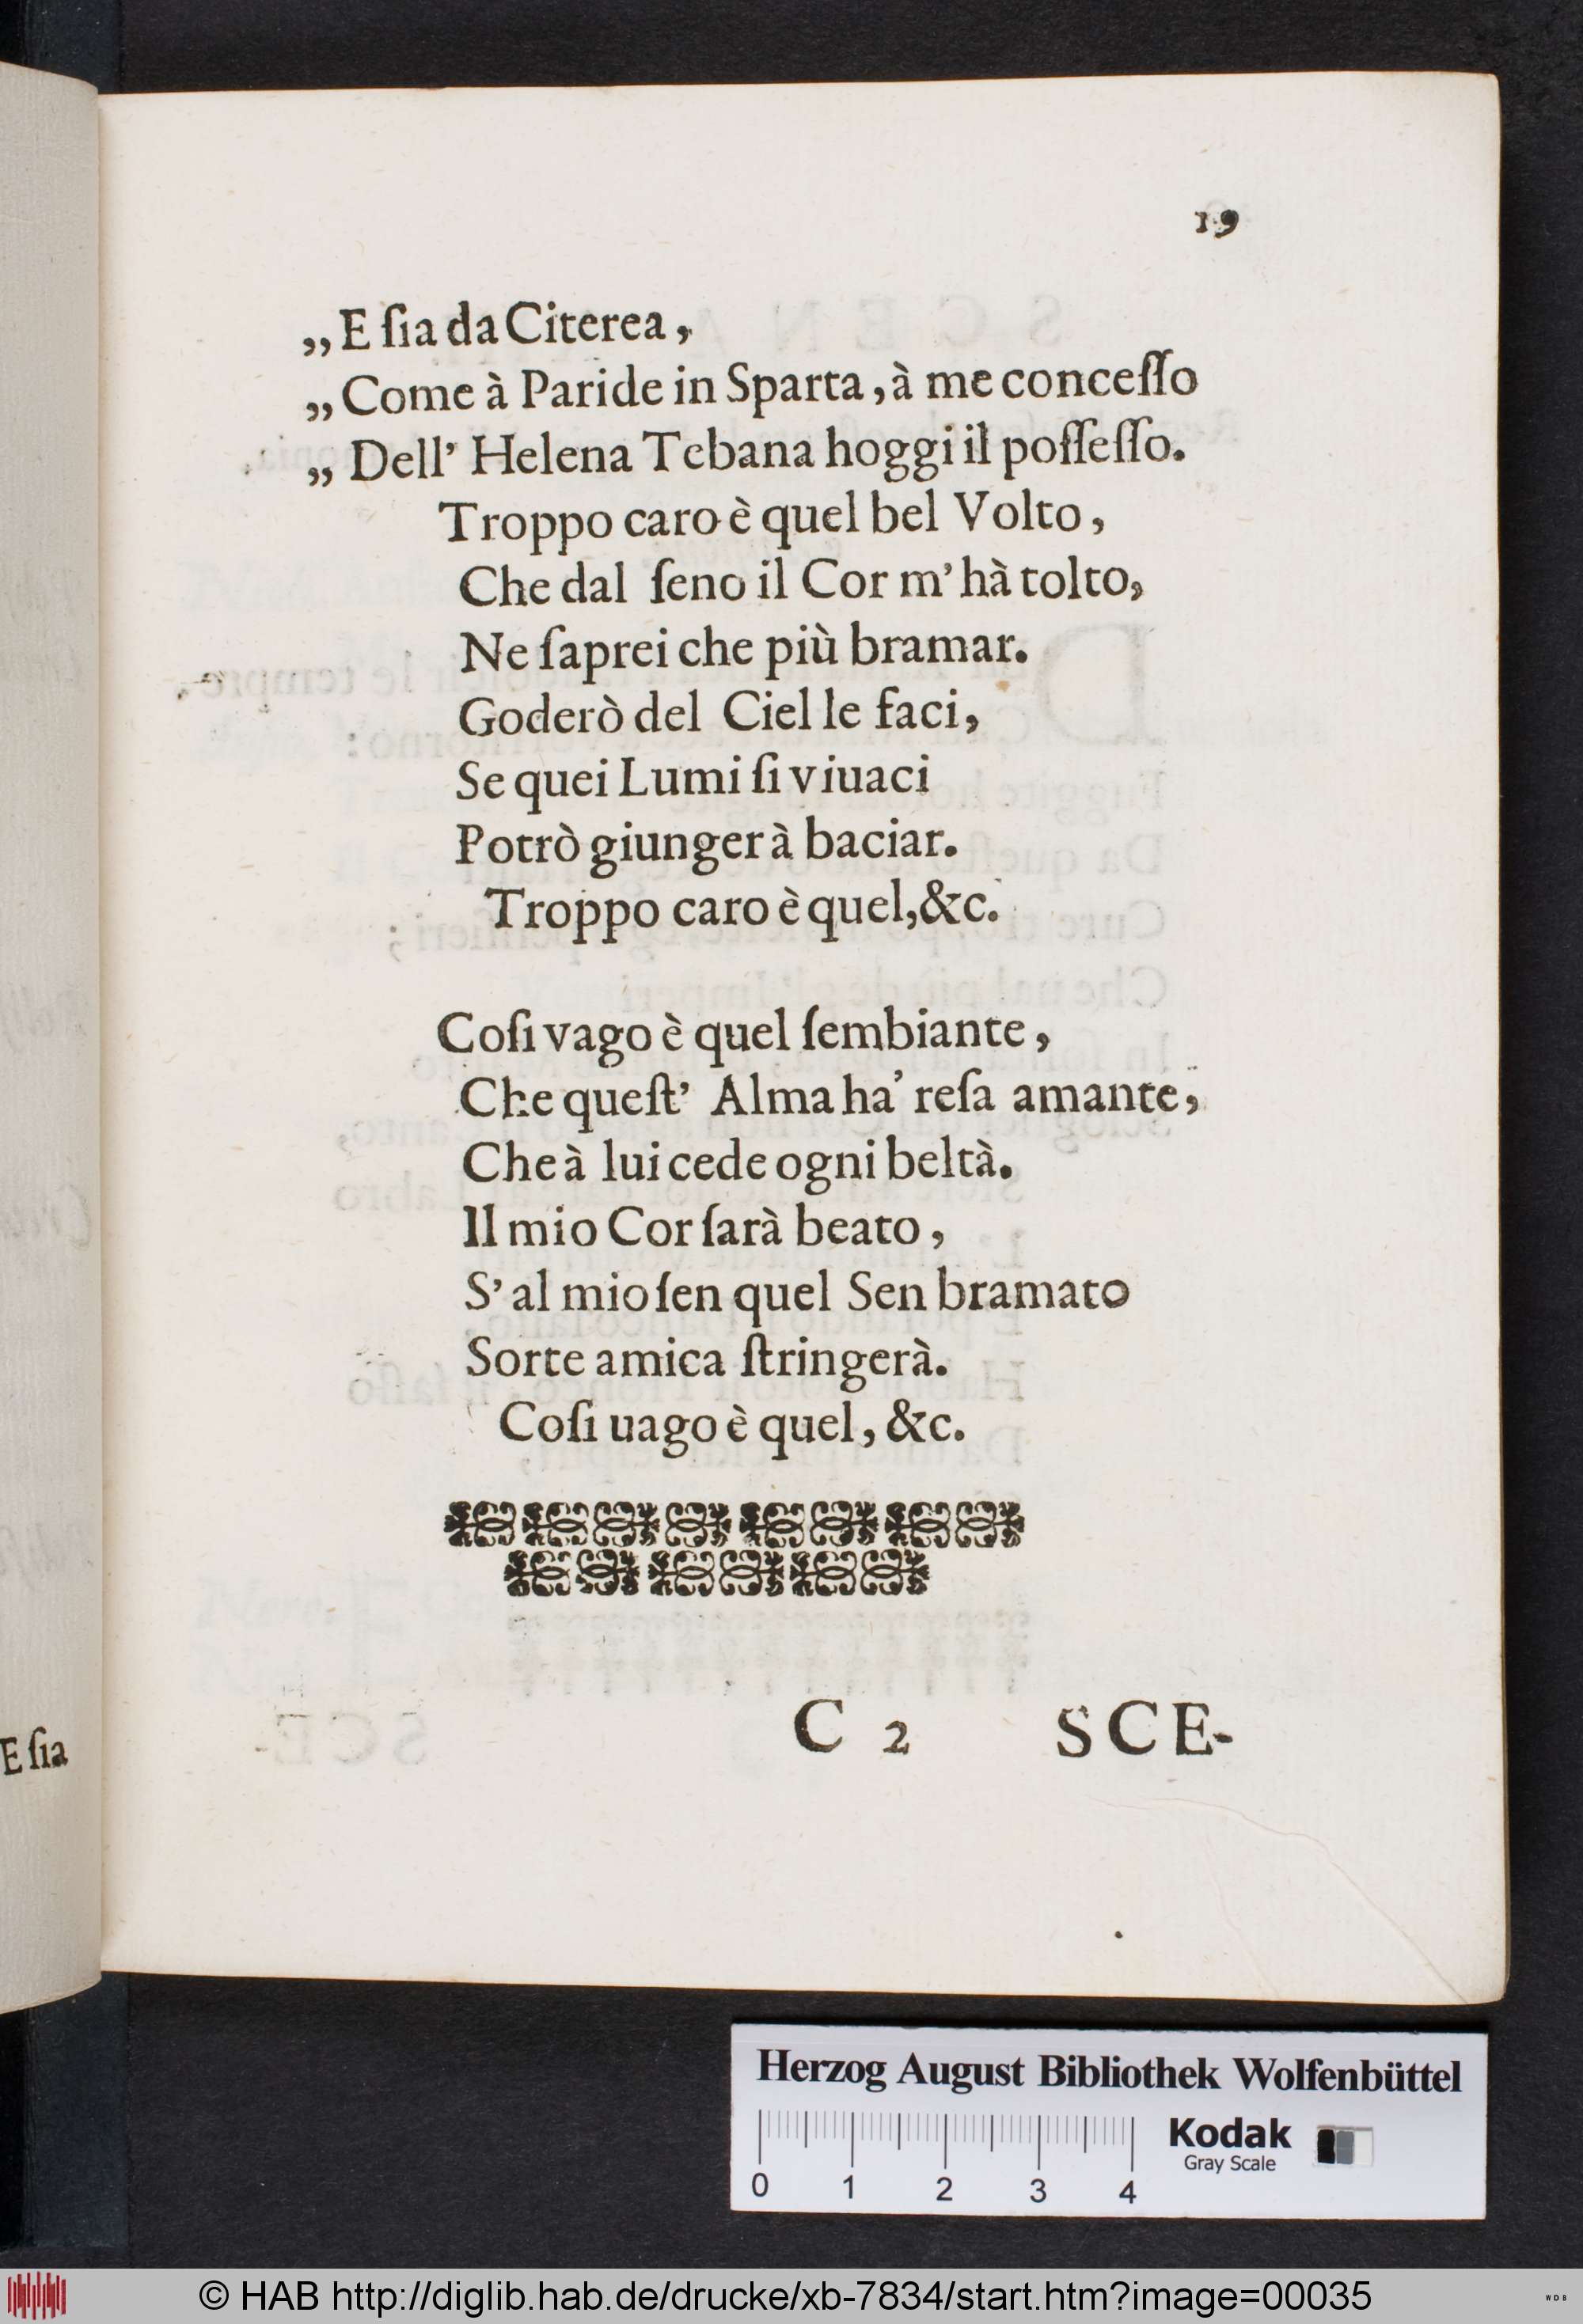 19
„ E ſia da Citerea,
„ Come à Paride in Sparta, à me conceſſo
„ Dell' Helena Tebana hoggi il poſſeſſo.
Troppo caro è quel bel Volto,
Che dal ſeno il Cor m' hà tolto,
Ne ſaprei che più bramar.
Goderò del Ciel le faci,
Se quei Lumi ſi viuaci
Potrò giunger à baciar.
Troppo caro è quel, &c.
Coſi vago è quel ſembiante,
Che queſt' Alma ha' reſa amante,
Che à lui cede ogni beltà.
Il mio Cor ſarà beato,
S' al mio ſen quel Sen bramato
Sorte amica ſtringerà.
Coſi uago è quel, &c.
C 2 SCE-
E ſia
Herzog August Bibliothek Wolfenbüttel
0 1 2 3 4
Kodak
Gray Scale
© HAB http://diglib.hab.de/drucke/xb-7834/start.htm?image=00035
WDB